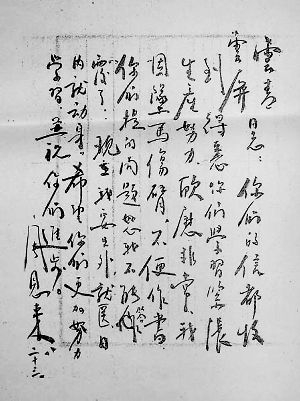 同志：你們的信都收
到得悉你們學習緊張
生產努力，欣慰非常。我
因墜馬傷臂不便作書
你們提的問題恕我不能作答
覆了。現在我要出外就醫日
內就動身，希望你們更加努力
學習，並祝你們進步。
周恩來
二十三